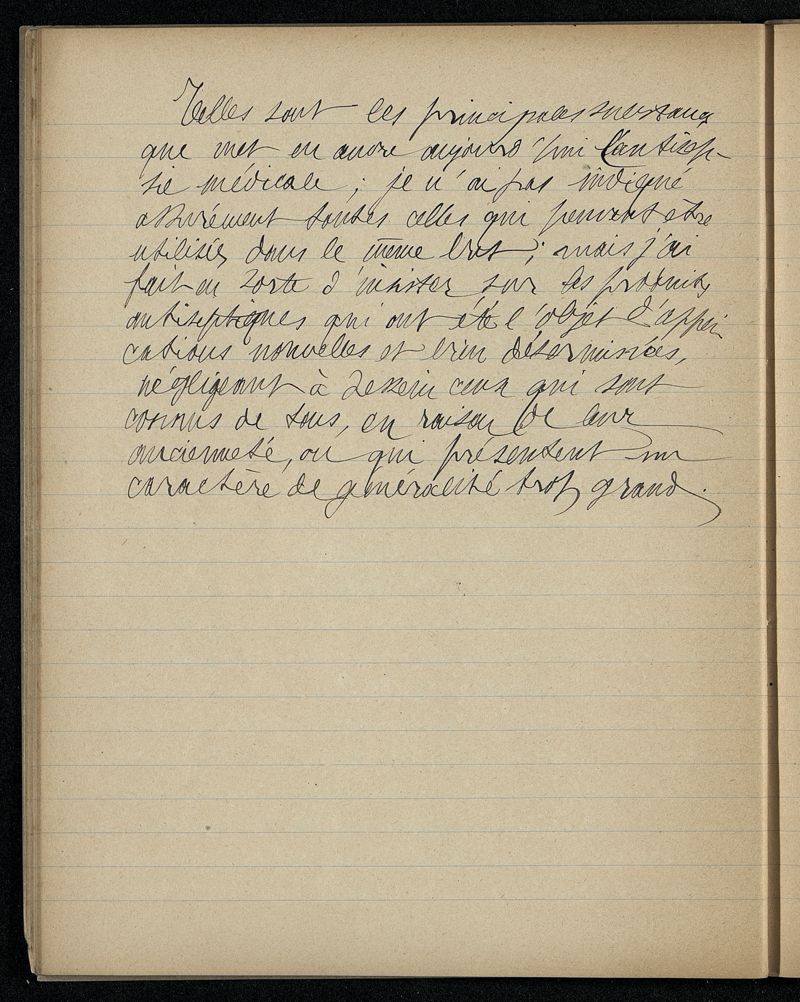 Telles sont les principales substances
que met en œuvre aujourd'hui l'antisep-
sie médicale ; je n'ai pas indiqué
assurément toutes celles qui peuvent être
utilisées dans le même but ; mais j'ai
fait en sorte d'insister sur les produits
antiseptiques qui ont été l'objet d'appli-
cations nouvelles et bien déterminées,
négligeant à dessein ceux qui sont
connus de tous, en raison de leur
ancienneté, ou qui présentent un
caractère de généralité trop grand.